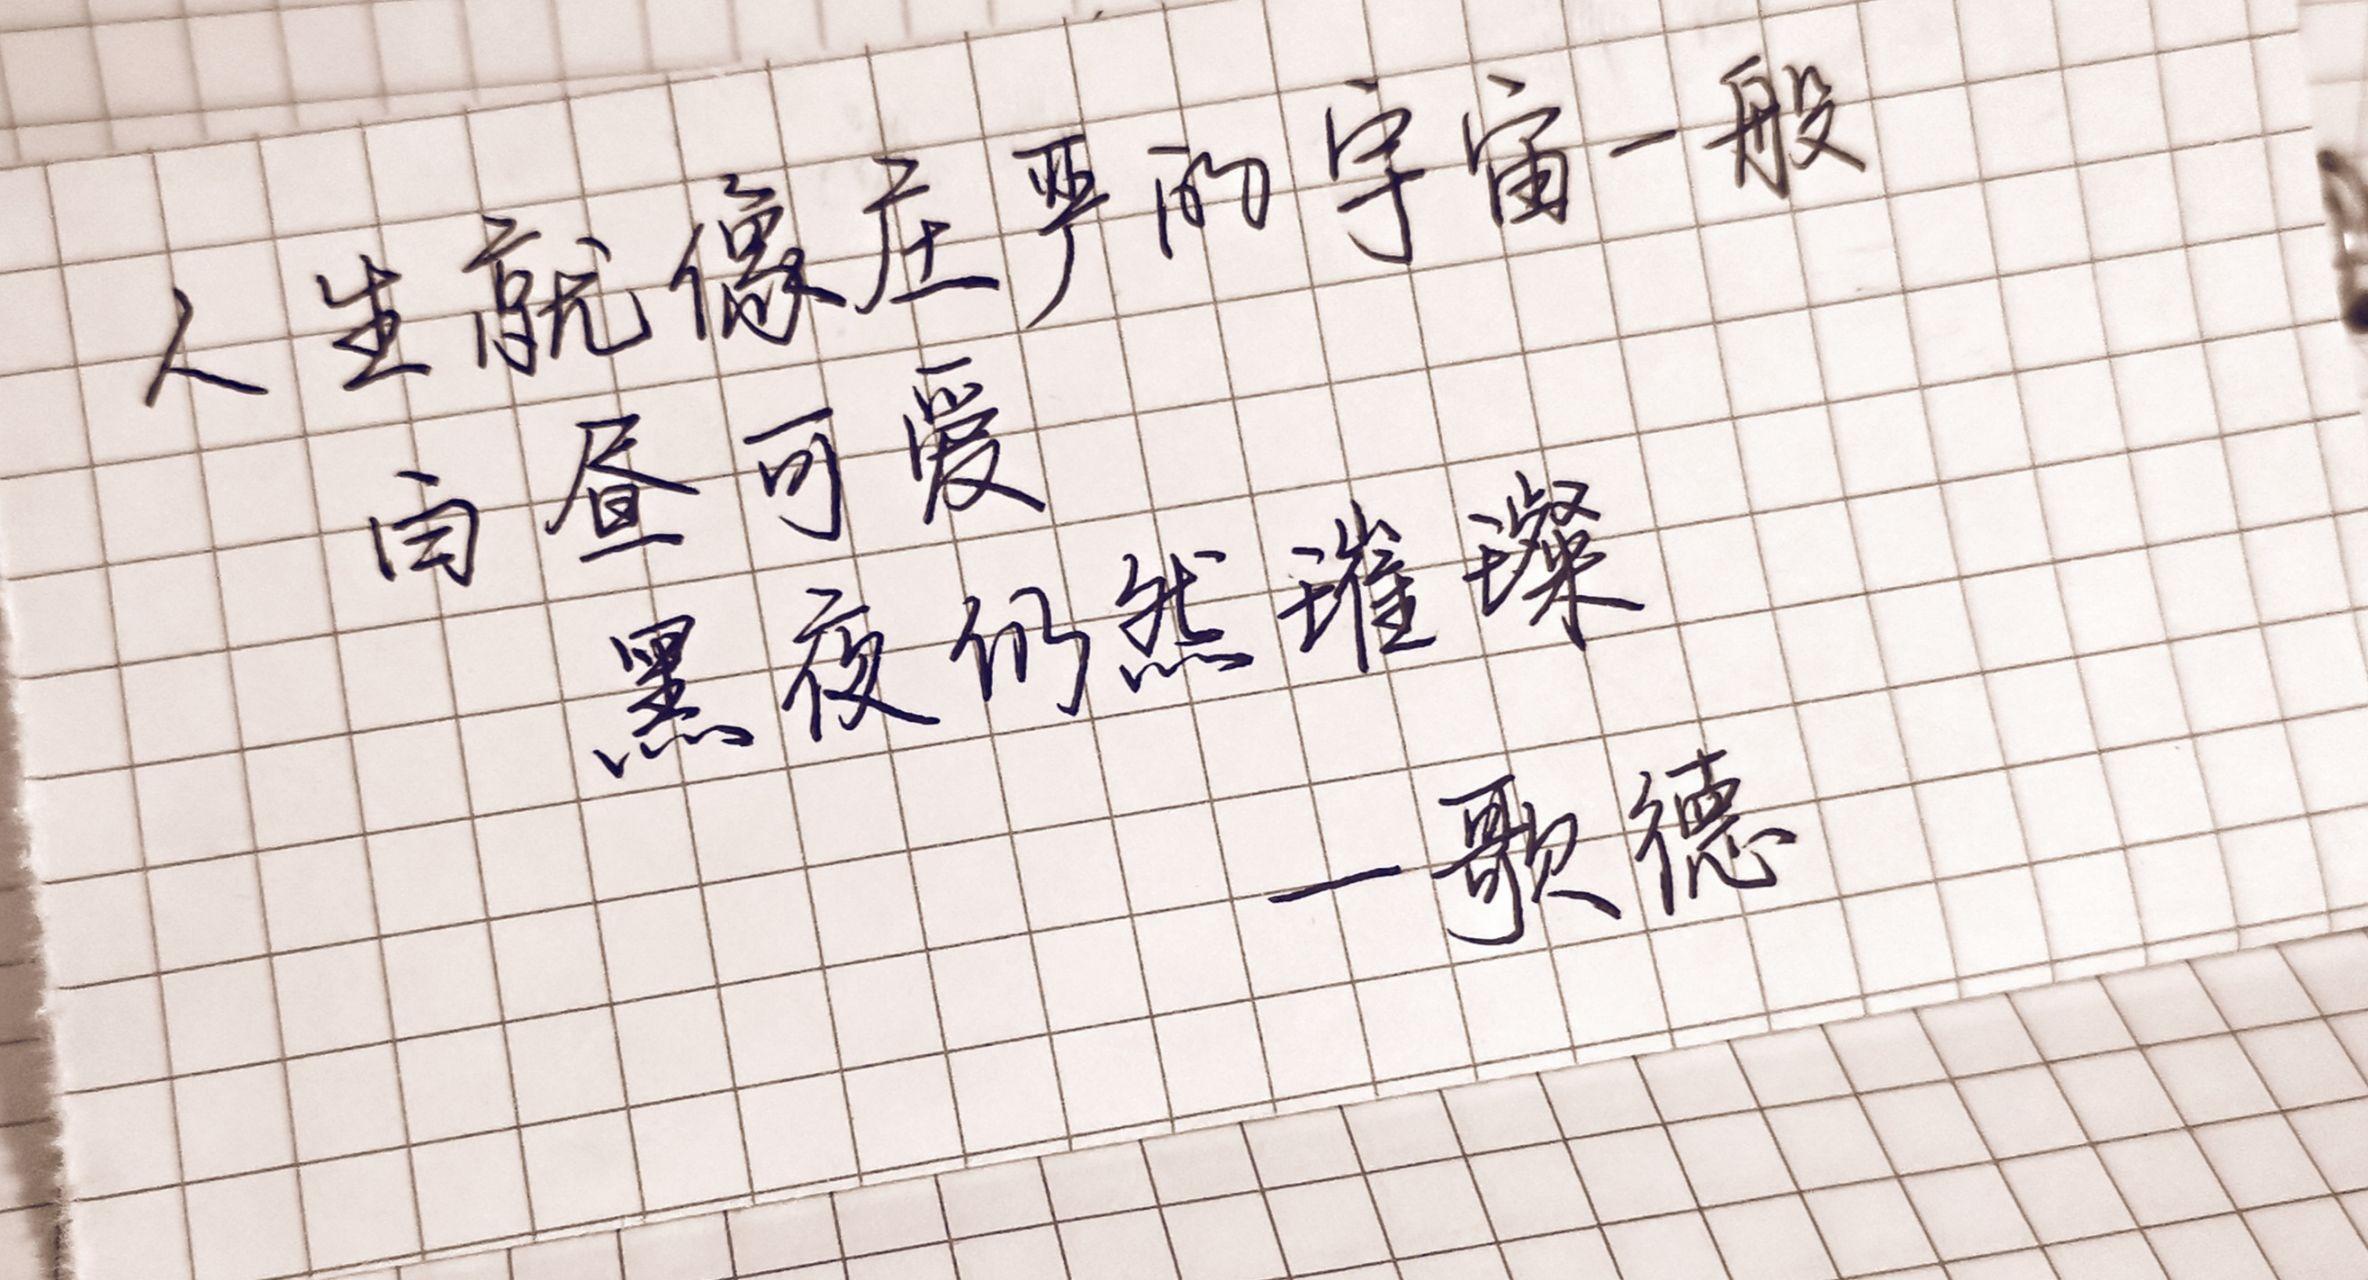 人生就像庄严的宇宙一般
白昼可爱
黑夜仍然璀璨
—歌德